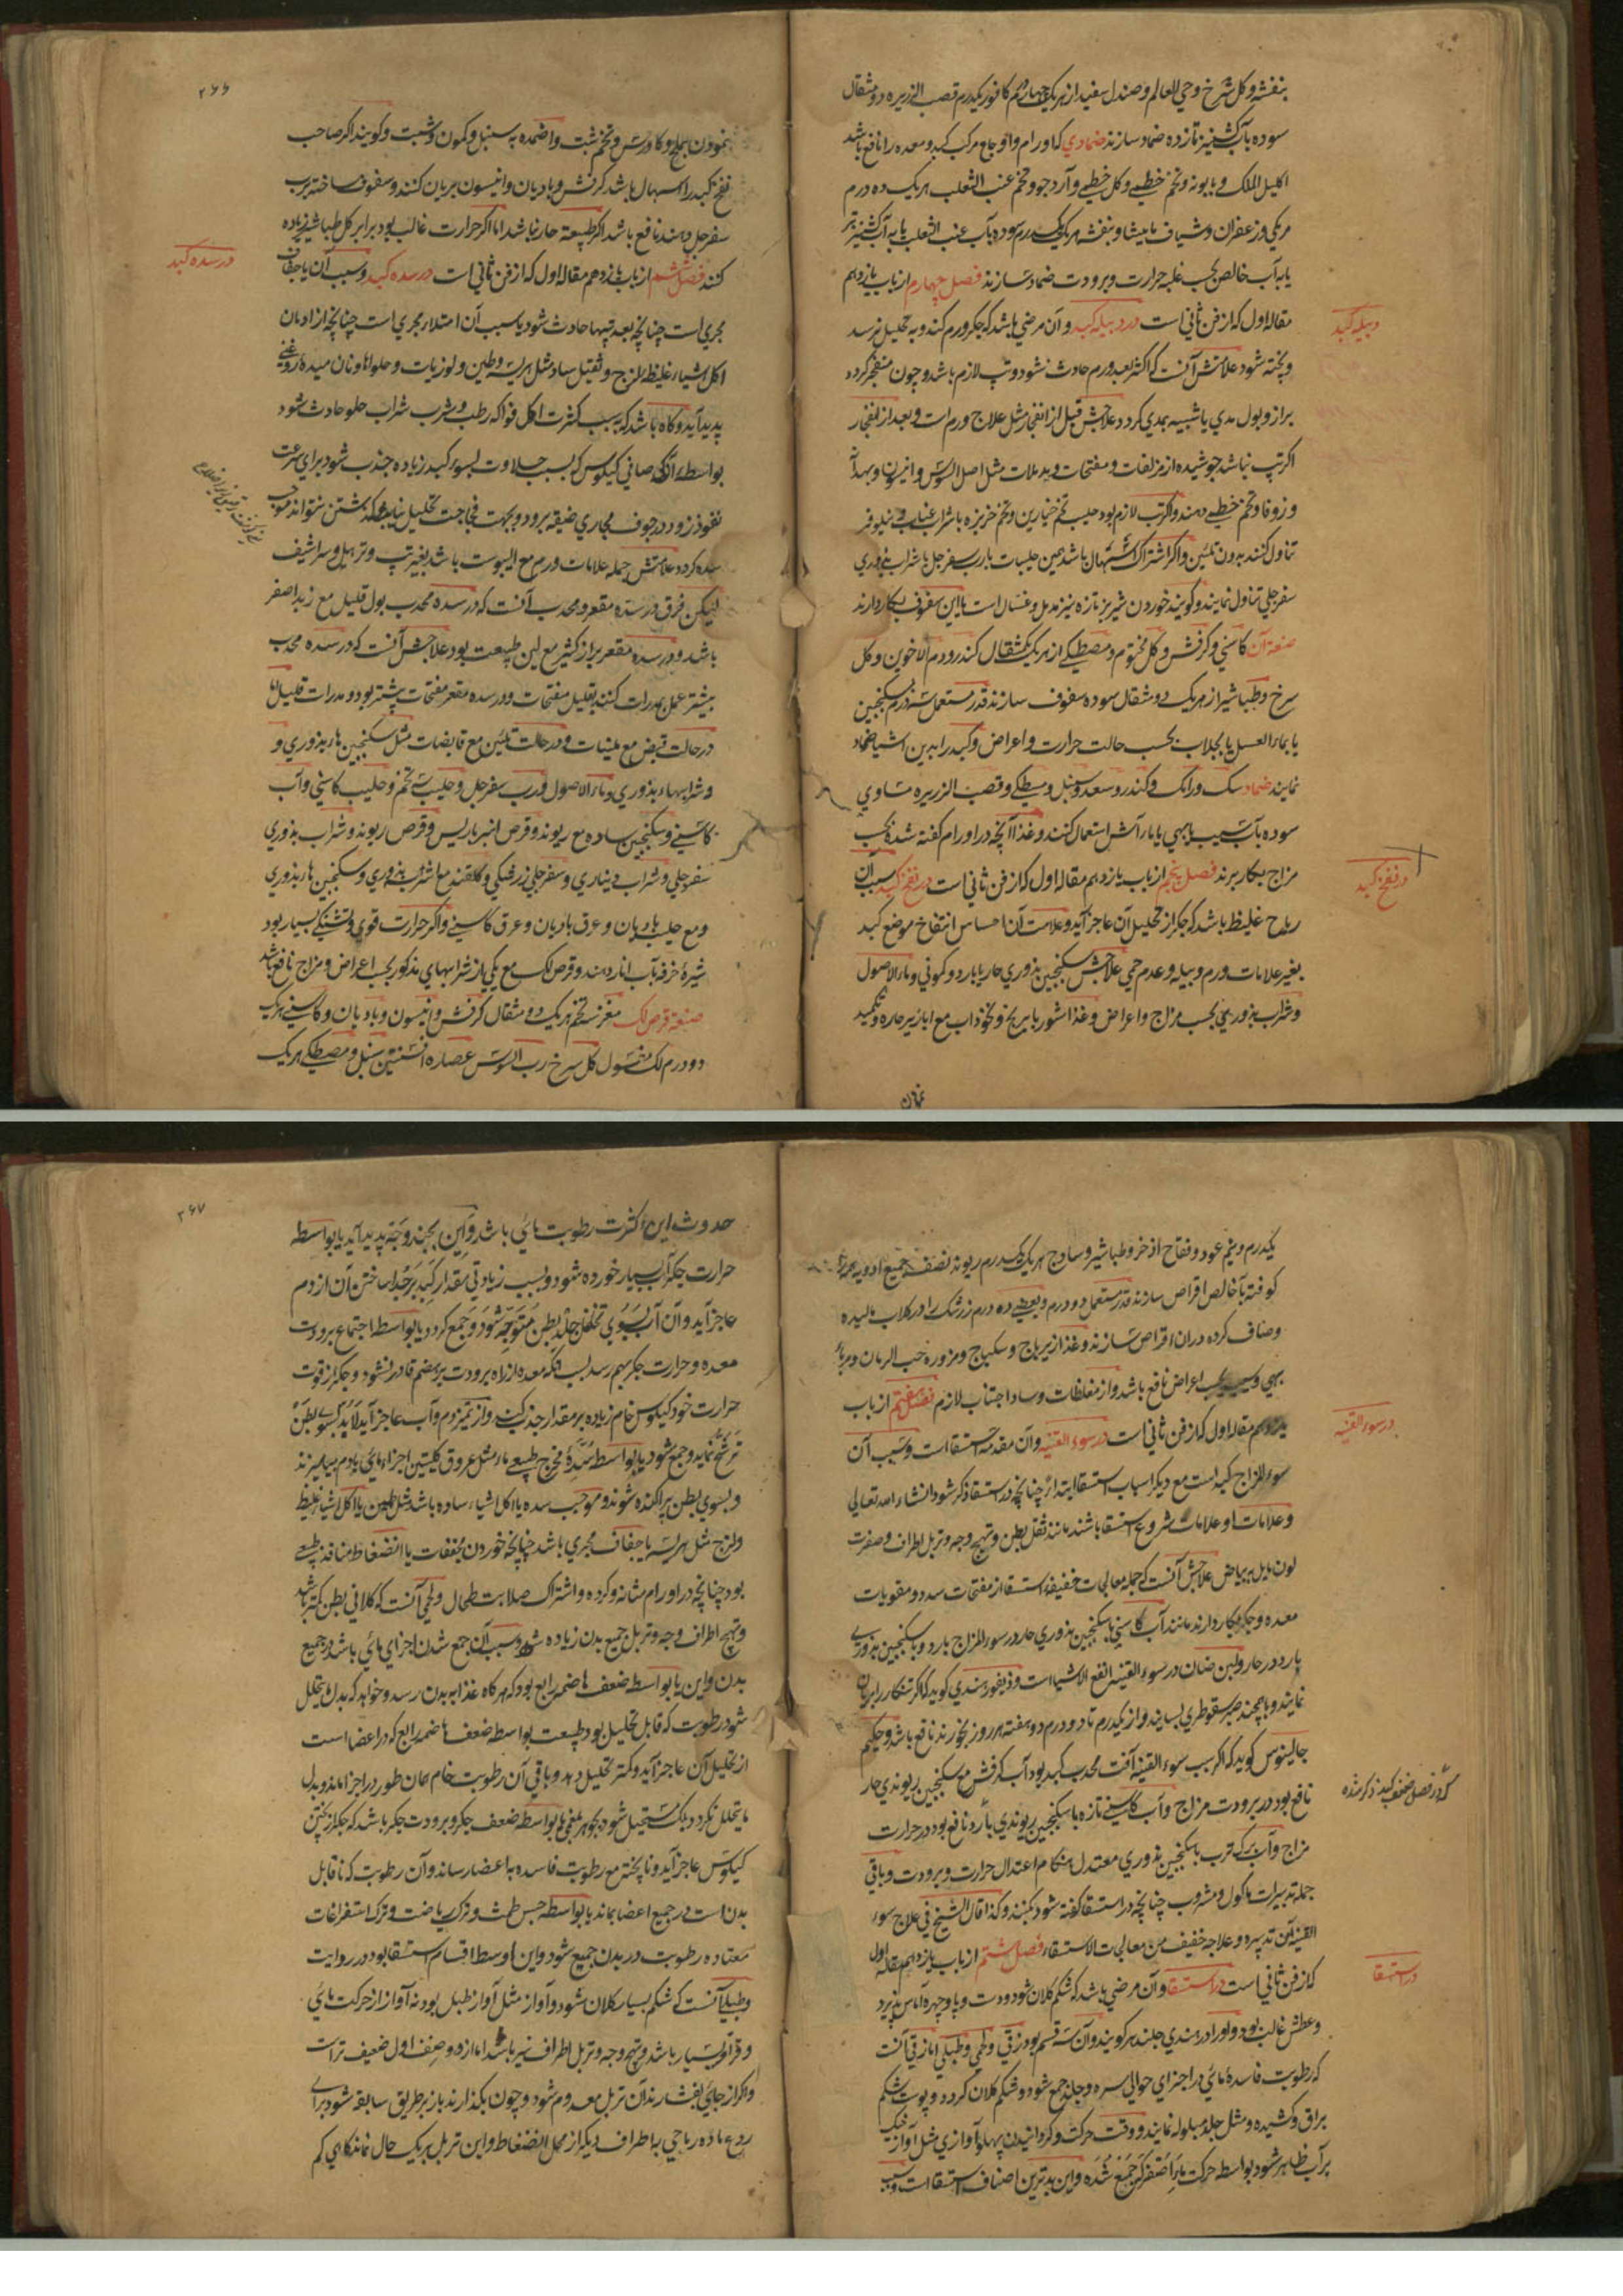 بنفشه و کل سرخ و حی العالم و صندل سفید از هریک چهاردرم کافور یکدرم قصب الزریره دو مثقال
سوده بآب کشنیز تازه ضماد سازند ضمادی که اورام و اوجاع مرکب کبد و معده را نافع باشد
اکلیل الملک و بابونه و تخم خطمی و کل خطمی و آرد جو و تخم عنب الثعلب هریک ده درم
مرمکی و زعفران و شیاف مامیثا و بنفشه هریک یکدرم سوده بآب عنب الثعلب یا به آب کشنیز تر
یا به آب خالص بحسب غلبه حرارت و برودت ضماد سازند فصل چهارم از باب یازدهم
مقاله اول که از فن ثانی است در دبیله کبد و آن مرضی باشد که جکر ورم کند و به تحلیل نرسد
و پخته شود علامتش آنست که اکثر بعد ورم حادث شود و تپ لازم باشد و چون منفجر کردد
براز و بول مدی یا شبیه بمدی کردد علاجش قبل از انفجار مثل علاج ورم است و بعد از انفجار
اکر تپ نباشد جوشیده از مزلقات و مفتحات و مدملات مثل اصل السوس و انیسون و بهدانه
و زوفا و تخم خطمی دهند و اکر تب لازم بود حلیب تخم خیارین و تخم خرپزه با شراب عناب و نیلوفر
تناول کنند بدون تلیین و اکر اشتراک اسهال باشد همین حلیبات با رب سفرجل با شراب بذوری
سفرجلی تناول نمایند و کویند خوردن شیر بز تازه نیز مدمل و غسال است یا این سفوف بکار دارند
صنعت آن کاسنی و کرفس و کل مختوم و مصطکی از هریک یکمثقال کندر و دم الاخوین و کل
سرخ و طباشیر از هریک دو مثقال سوده سفوف سازند قدر مستعمل سه درم بسکنجبین
یا بماء العسل یا بجلاب بحسب حالت حرارت و اعراض و کبد را بدین اشیا ضماد
نمایند ضماد سک و رامک و کندر و سعد و سنبل و مصطکی و قصب الزریره مساوی
سوده بآب سیب یا بهی یا بماء آس استعمال کنند و غذا آنچه در اورام کفته شده بحسب
مزاج بکار برند فصل پنجم از باب یازدهم مقاله اول که از فن ثانی است در نفخ کبد سبب آن
ریاح غلیظ باشد که جکر از تحلیل آن عاجز آید و علامت آن احساس انتفاخ موضع کبد
بغیر علامات ورم و دبیله و عدم حمی علاجش سکنجبین بذوری حار یا بارد و کمونی و ماء الاصول
و شراب بذوری بحسب مزاج و اعراض و غذا شوربا برنج و نخوداب مع ابازیر حاره و تکمید
دبیله کبد
در نفخ کبد
نمودن
۲۶۶
نمودن بملح و کاورس و تخم شبت و اضمده به سنبل و کمون و شبت و کویند اکر صاحب
نفخ کبد را اسهال باشد کرفس و بادیان و انیسون بریان کنند و سفوف ساخته برب
سفرجل دهند نافع باشد اکر طبیعت حار نباشد اما اکر حرارت غالب بود برابر کل طباشیر زیاده
کنند فصل ششم از باب یازدهم مقاله اول که از فن ثانی است در سده کبد و سبب آن یا جفاف
مجری است چنانچه بعد تپها حادث شود یا سبب آن امتلاء مجری است چنانچه از ادمان
اکل اشیاء غلیظ لزج و ثقیل ساد مثل هریسه و طین و لوزیات و حلواها و نان میده روغنی
پدید آید و کاه باشد که بسبب کثرت اکل فواکه رطب و شرب شراب حلو حادث شود
بواسطه آنکه صافی کیلوس که بسبب حلاوت بسوء کبد زیاده جذب شود برای سرعت
نفوذ زود در جوف مجاری ضیقه برود و بجهت فجاجت تحلیل نیافته کذشتن نتواند موجب
سده کردد علامتش جمله علامات ورم مع الیبوست باشد بغیر تپ و ترهل و سراشیف
لیکن فرق در سده مقعر و محدب آنست که در سده محدب بول قلیل مع زبد اصفر
باشد و در سده مقعر براز کثیر مع لین طبیعت بود علاجش آنست که در سده محدب
بیشتر عمل بمدرات کنند بتقلیل مفتحات و در سده مقعر مفتحات بیشتر بود و مدرات قلیل اما
در حالت قبض مع ملینات و در حالت تلیین مع قابضات مثل سکنجبین هاء بذوری و
و شرابهاء بذوری و ماء الاصول و رب سفرجل و حلیب سه تخم و حلیب کاسنی و آب
کاسنی و سکنجبین ساده مع ریوند و قرص انبرباریس و قرص ریوند و شراب بذوری
سفرجلی و شراب دیناری و سفرجلی زرشکی و کلقند مع اشربه بذوری و سکنجبین هاء بذوری
و مع حلیب بادیان و عرق بادیان و عرق کاسنی و اکر حرارت قوی و تشنکی بسیار بود
شیرهٔ خرفه بآب انار دهند و قرص لک مع یکی از شرابهای مذکور بحسب اعراض و مزاج نافع باشد
صنعت قرص لک مغز سه تخم هریک دو مثقال کرفس و انیسون و بادیان و کاسنی هریک
دو درم لک مغسول کل سرخ رب السوس عصاره افسنتین سنبل و مصطکی هریک
در سده کبد
یکدرم و نیم عود و فقاح اذخر و طباشیر و سادج هریک یکدرم ریوند نصف جمیع ادویه همه را
کوفته بآب خالص اقراص سازند قدر مستعمل دو درم و بعضی ده درم زرشک را در کلاب مالیده
و صاف کرده دران اقراص سازند و غذا زیرباج و سکباج و مزوره حب الرمان و مرباء
بهی و سیب بحسب اعراض نافع باشد و از مغلظات و ساد اجتناب لازم فصل هفتم از باب
یازدهم مقاله اول که از فن ثانی است در سوء القنیه و آن مقدمه استسقا است و سبب آن
سوء المزاج کبد است مع دیکر اسباب استسقا ابتداءً چنانچه در استسقا ذکر شود انشاء الله تعالی
و علامات او علامات شروع استسقا باشند مانند ثقل بطن و تهیج وجه و تربل اطراف و صفرت
لون مایل ببیاض علاجش آنست که جمله معالجات خفیفهٔ استسقا از مفتحات سدد و مقویات
معده و جکر بکار دارند مانند آب کاسنی با سکنجبین بذوری حار در سوء المزاج بارد و با سکنجبین بذوری
بارد در حار و لبن ضان در سوء القنیه انفع الاشیا است و ذیفور هندی کوید که اکر تنکار را بریان
نمایند و با همچند صبر سقوطری بسایند و از یکدرم تا دو درم دو هفته هر روز بخورند نافع باشد و حکیم
جالینوس کوید که اکر سبب سوء القنیه آفت محدب کبد بود آب کرفس مع سکنجبین ریوندی حار
نافع بود در برودت مزاج و آب کاسنی تازه با سکنجبین ریوندی بارد نافع بود در حرارت
مزاج و آب برک ترب با سکنجبین بذوری معتدل هنکام اعتدال حرارت و برودت و باقی
جمله تدبیرات ماکول و مشروب چنانچه در استسقا کفته شود بکنند و کذا قال الشیخ فی علاج سوء
القنیه ان تدبیره و علاجه خفیف من معالجات الاستسقاء فصل هشتم از باب یازدهم مقاله اول
که از فن ثانی است در استسقا و آن مرضی باشد که شکم کلان شود و دست و پا و چهره آماس پذیرد
و عطش غالب بود و او را در هندی جلندهر کویند و آن سه قسم بود زقی و لحمی و طبلی اما زقی آنست
که رطوبت فاسدهٔ مائی در اجزای حوالی سره و جلد جمع شود و شکم کلان کردد و پوست شکم
براق و کشیده و مثل جلد مبلوله نمایند و وقت حرکت و کردانیدن پهلو آوازی مثل آواز خیک
پر آب ظاهر شود بواسطه حرکت ماء اصفر که جمع شده و این بدترین اصناف استسقا است و سبب
در سوء القنیه
که در فصل ضعف کبد ذکر شده
در استسقا
۲۶۷
حدوث این کثرت رطوبت مائی باشد و این بچند وجه پدید آید یا بواسطه
حرارت جکر آب بسیار خورده شود و بسبب زیادتی مقدار کبد بر جدا ساختن آن از دم
عاجز آید و آن آب بسوی تخلخل جلد بطن متوجه شود و جمع کردد یا بواسطه اجتماع برودت
معده و حرارت جکر بهم رسد بسبب آنکه معده از راه برودت بر هضم قادر نشود و جکر از قوت
حرارت خود کیلوس خام زیاده بر مقدار جذب کند و از تمیز دم و آب عاجز آید لابد بسوی بطن
ترشح نماید و جمع شود یا بواسطه سدهٔ مخرج طبیعی ماء مثل عروق کلیتین اجزاء مائی با دم بیامیزند
و بسوی بطن پراکنده شوند و موجب سده یا اکل اشیاء ساده باشد مثل طین یا اکل اشیاء غلیظ
و لزج مثل هریسه یا جفاف مجری باشد چنانچه خوردن مجففات یا انضغاط منافذ طبیعی
بود چنانچه در اورام مثانه و کرده و اشتراک صلابت طحال و لحمی آنست که کلانی بطن کمتر باشد
و تهیج اطراف و وجه و تربل جمیع بدن زیاده شود و سبب آن جمع شدن اجزای مائی باشد در جمیع
بدن و این یا بواسطه ضعف هاضمه رابع بود که هر کاه غذا به بدن رسد و خواهد که بدل ما یتحلل
شود رطوبت که قابل تحلیل بود طبیعت بواسطه ضعف هاضمه رابع که در اعضا است
از تحلیل آن عاجز آید و کمتر تحلیل دهد و باقی آن رطوبت خام همان طور در اجزا ماند و بدل
ما یتحلل نکردد بلکه مستحیل شود بجوهر بلغمی یا بواسطه ضعف جکر و برودت جکر باشد که جکر از پختن
کیلوس عاجز آید و ناپخته مع رطوبت فاسده به اعضا رساند و آن رطوبت که ناقابل
بدن است در جمیع اعضا بماند یا بواسطه حبس طمث و ترک ریاضت و ترک استفراغات
معتاده رطوبت در بدن جمع شود و این اوسط اقسام استسقا بود در روایت
و طبلی آنست که شکم بسیار کلان شود و آواز مثل آواز طبل بود نه آواز از حرکت مائی
و قراقر بسیار باشد و تهیج وجه و تربل اطراف نیز باشد اما از دو صنف اول ضعیف تر است
و اکر از جائی بفشارند آن تربل معدوم شود و چون بکذارند باز بر طریق سابقه شود برای
رجوع ماده ریاحی به اطراف دیکر از محل انضغاط و این تربل بر یک حال نماند کاهی کم